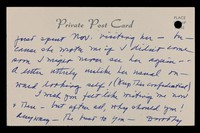 Private Post Card
PLACE
just spent Nov. visiting her - be-
cause she wrote me if I didn't come
soon I might never see her again -
a letter utterly unlike her usual on-
ward looking self! (Keep this confidential)
I wd you felt like writing me now
& then - but after all, why should you?
Anyway - The best to you - Dorothy